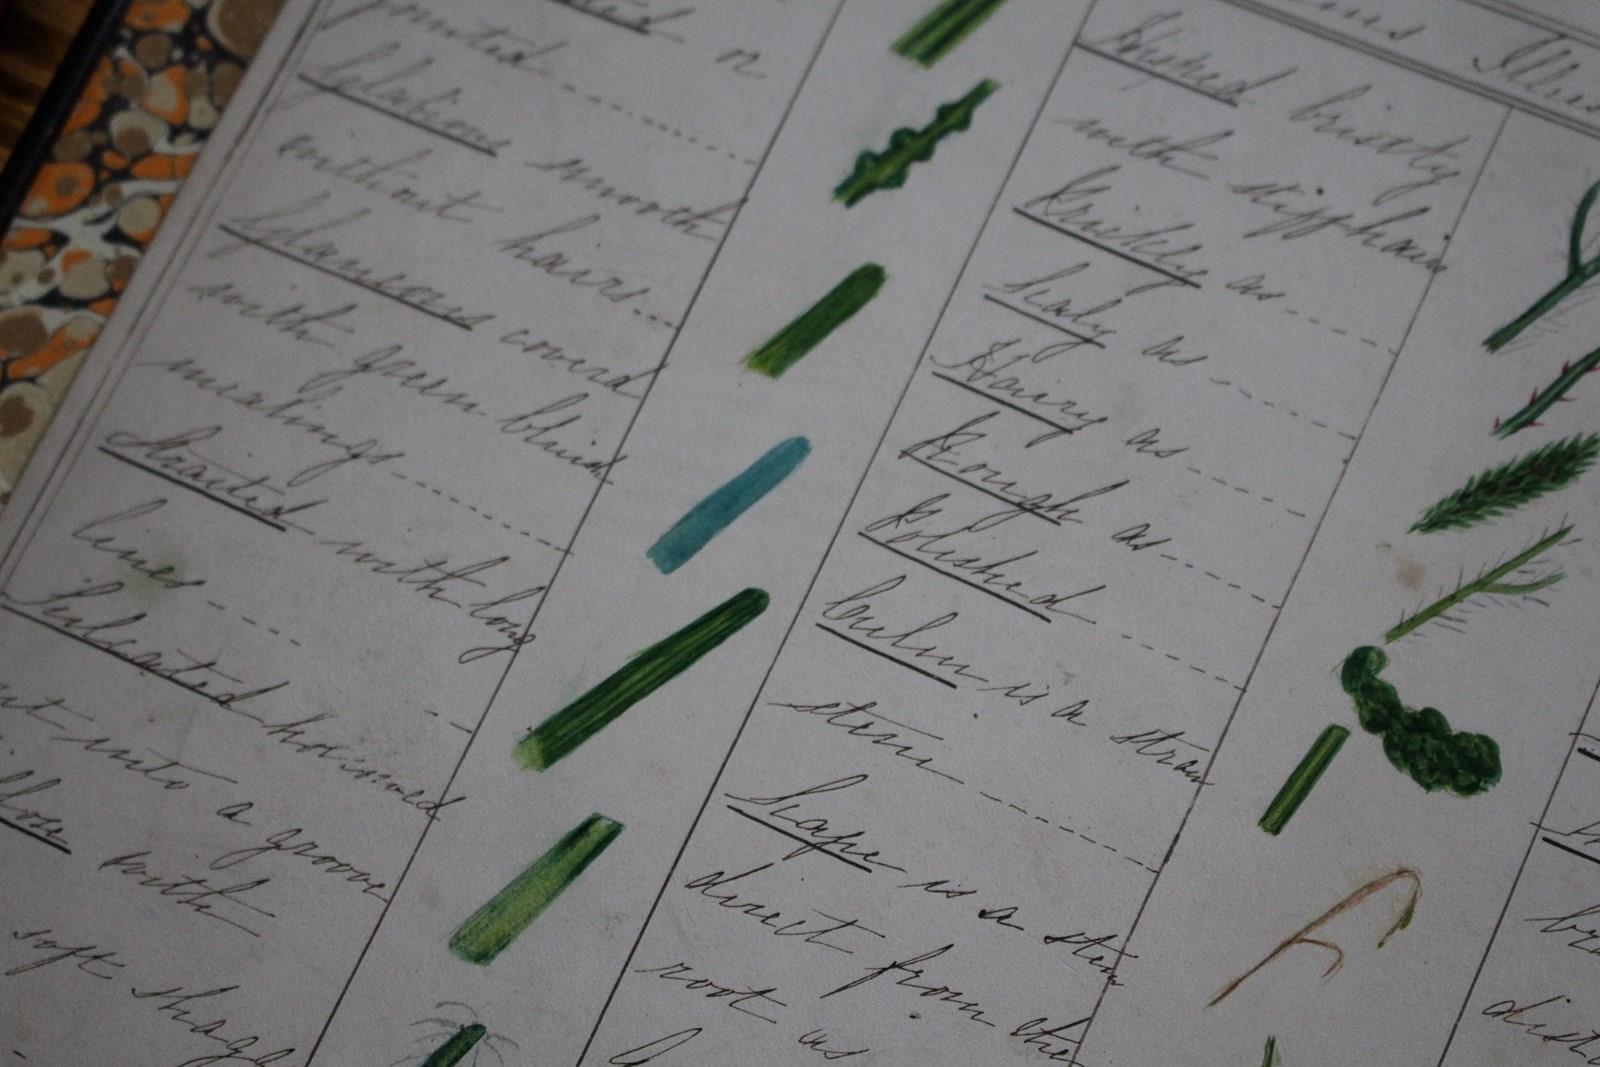 pointed or
Glabrous smooth
without hairs
Glaucous coverd
with green bluish
mealings
Striated with long
lines
Sulcated horizoned
cut into a groove
with
soft shagg
Illus
Hisped bristly
with stiff hair
Prickley as
Scaly as
Hairy as
Rough as
Polished
Culm is a straw
stem
Scape is a stem
direct from the
root as
br
dist